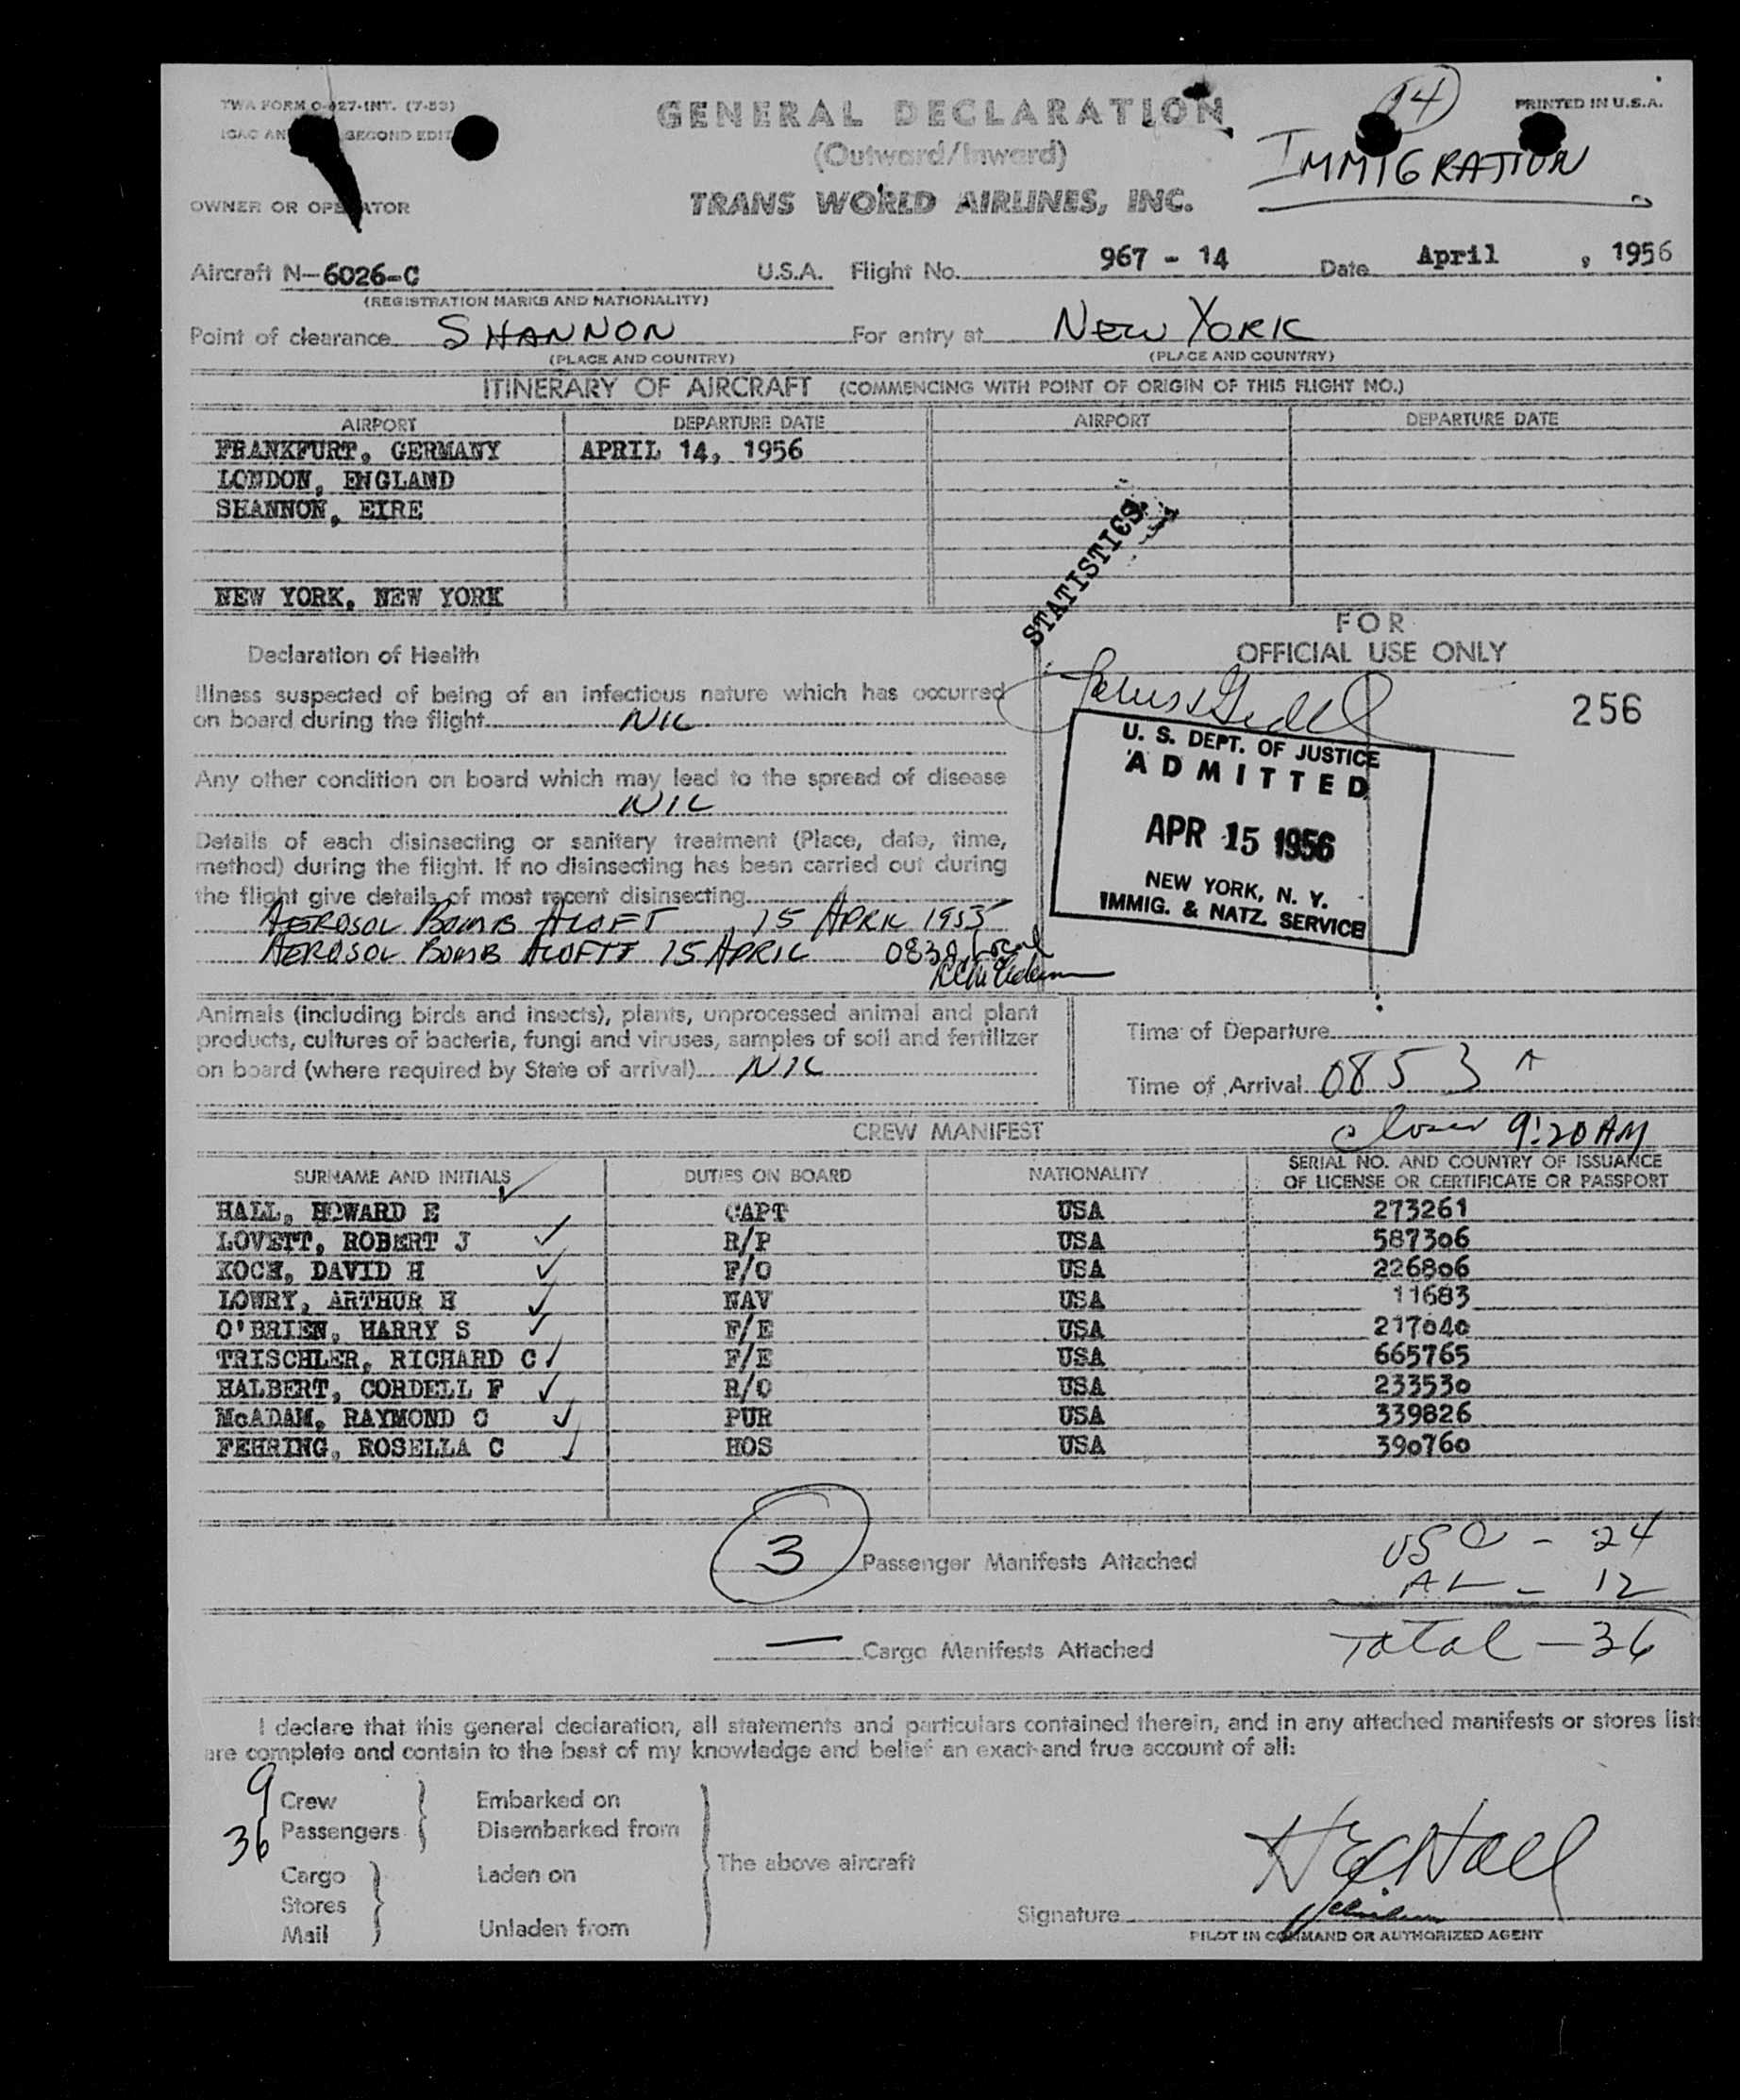 TWA FORM O- 27-INT. (7-53)
PRINTED IN U.S.A.
14
GENERAL DECLARATION
(Outward/Inward)
IMMIGRATION
TRANS WORLD AIRLINES, INC.
ICAO AN SECOND EDIT
OWNER OR OPERATOR
Aircraft N-6026-C U.S.A. Flight No. 967 - 14 Date April , 1956
(REGISTRATION MARKS AND NATIONALITY)
Point of clearance SHANNON For entry at NEW YORK
(PLACE AND COUNTRY) (PLACE AND COUNTRY)
ITINERARY OF AIRCRAFT (COMMENCING WITH POINT OF ORIGIN OF THIS FLIGHT NO.)
AIRPORT DEPARTURE DATE AIRPORT DEPARTURE DATE
FRANKFURT, GERMANY APRIL 14, 1956
LONDON, ENGLAND
SHANNON, EIRE
NEW YORK, NEW YORK
STATISTICS
FOR
OFFICIAL USE ONLY
256
U. S. DEPT. OF JUSTICE
ADMITTED
APR 15 1956
NEW YORK, N. Y.
IMMIG. & NATZ. SERVICE
Declaration of Health
Illness suspected of being of an infectious nature which has occurred
on board during the flight NIL
Any other condition on board which may lead to the spread of disease
NIL
Details of each disinsecting or sanitary treatment (Place, date, time,
method) during the flight. If no disinsecting has been carried out during
the flight give details of most recent disinsecting
AEROSOL BOMB ALOFT 15 APRIL 1955
AEROSOL BOMB ALOFTT 15 APRIL 0830 Local
Animals (including birds and insects), plants, unprocessed animal and plant
products, cultures of bacteria, fungi and viruses, samples of soil and fertilizer
on board (where required by State of arrival) NIL
Time of Departure
Time of Arrival 0853 A
Closed 9:20 AM
CREW MANIFEST
SURNAME AND INITIALS DUTIES ON BOARD NATIONALITY SERIAL NO. AND COUNTRY OF ISSUANCE
OF LICENSE OR CERTIFICATE OR PASSPORT
HALL, HOWARD E CAPT USA 273261
LOVETT, ROBERT J R/P USA 587306
KOCH, DAVID H F/O USA 226806
LOWRY, ARTHUR H NAV USA 11683
O'BRIEN, HARRY S F/E USA 217040
TRISCHLER, RICHARD C F/E USA 665765
HALBERT, CORDELL F R/O USA 233530
McADAM, RAYMOND O PUR USA 339826
FEHRING, ROSELLA C HOS USA 390760
3 Passenger Manifests Attached
USC - 24
AL - 12
Total - 36
— Cargo Manifests Attached
I declare that this general declaration, all statements and particulars contained therein, and in any attached manifests or stores lists
are complete and contain to the best of my knowledge and belief an exact and true account of all:
9 Crew Embarked on
36 Passengers Disembarked from
The above aircraft
Cargo Laden on
Stores
Mail Unladen from
Signature HE Hall
PILOT IN COMMAND OR AUTHORIZED AGENT